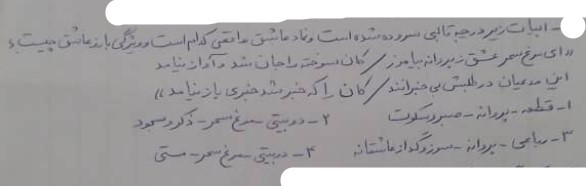 - ابیات زیر در چه قالبی سروده شده است و نماد عاشق واقعی کدام است و ویژگی بارز عاشق چیست؟
«ای مرغ سحر عشق ز پروانه بیاموز / کان سوخته را جان شد و آواز نیامد
این مدعیان در طلبش بی خبرانند / کان را که خبر شد خبری باز نیامد»
۱- قطعه - پروانه - صبر و سکوت ۲- دوبیتی - مرغ سحر - ذکر و سجود
۳- رباعی - پروانه - سوز و گداز عاشقانه ۴- دوبیتی - مرغ سحر - مستی